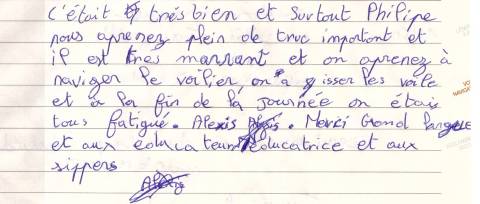 c'était trés bien et surtout Philipe
nous aprenez plein de truc important et
il est tres marrant et on aprenez à
naviger le voilier on a isser les voile
et a la fin de la journée on étais
tous fatigué. Alexis. Merci Grand Largue
et aux éducateur éducatrice et aux
sippers
Alexis